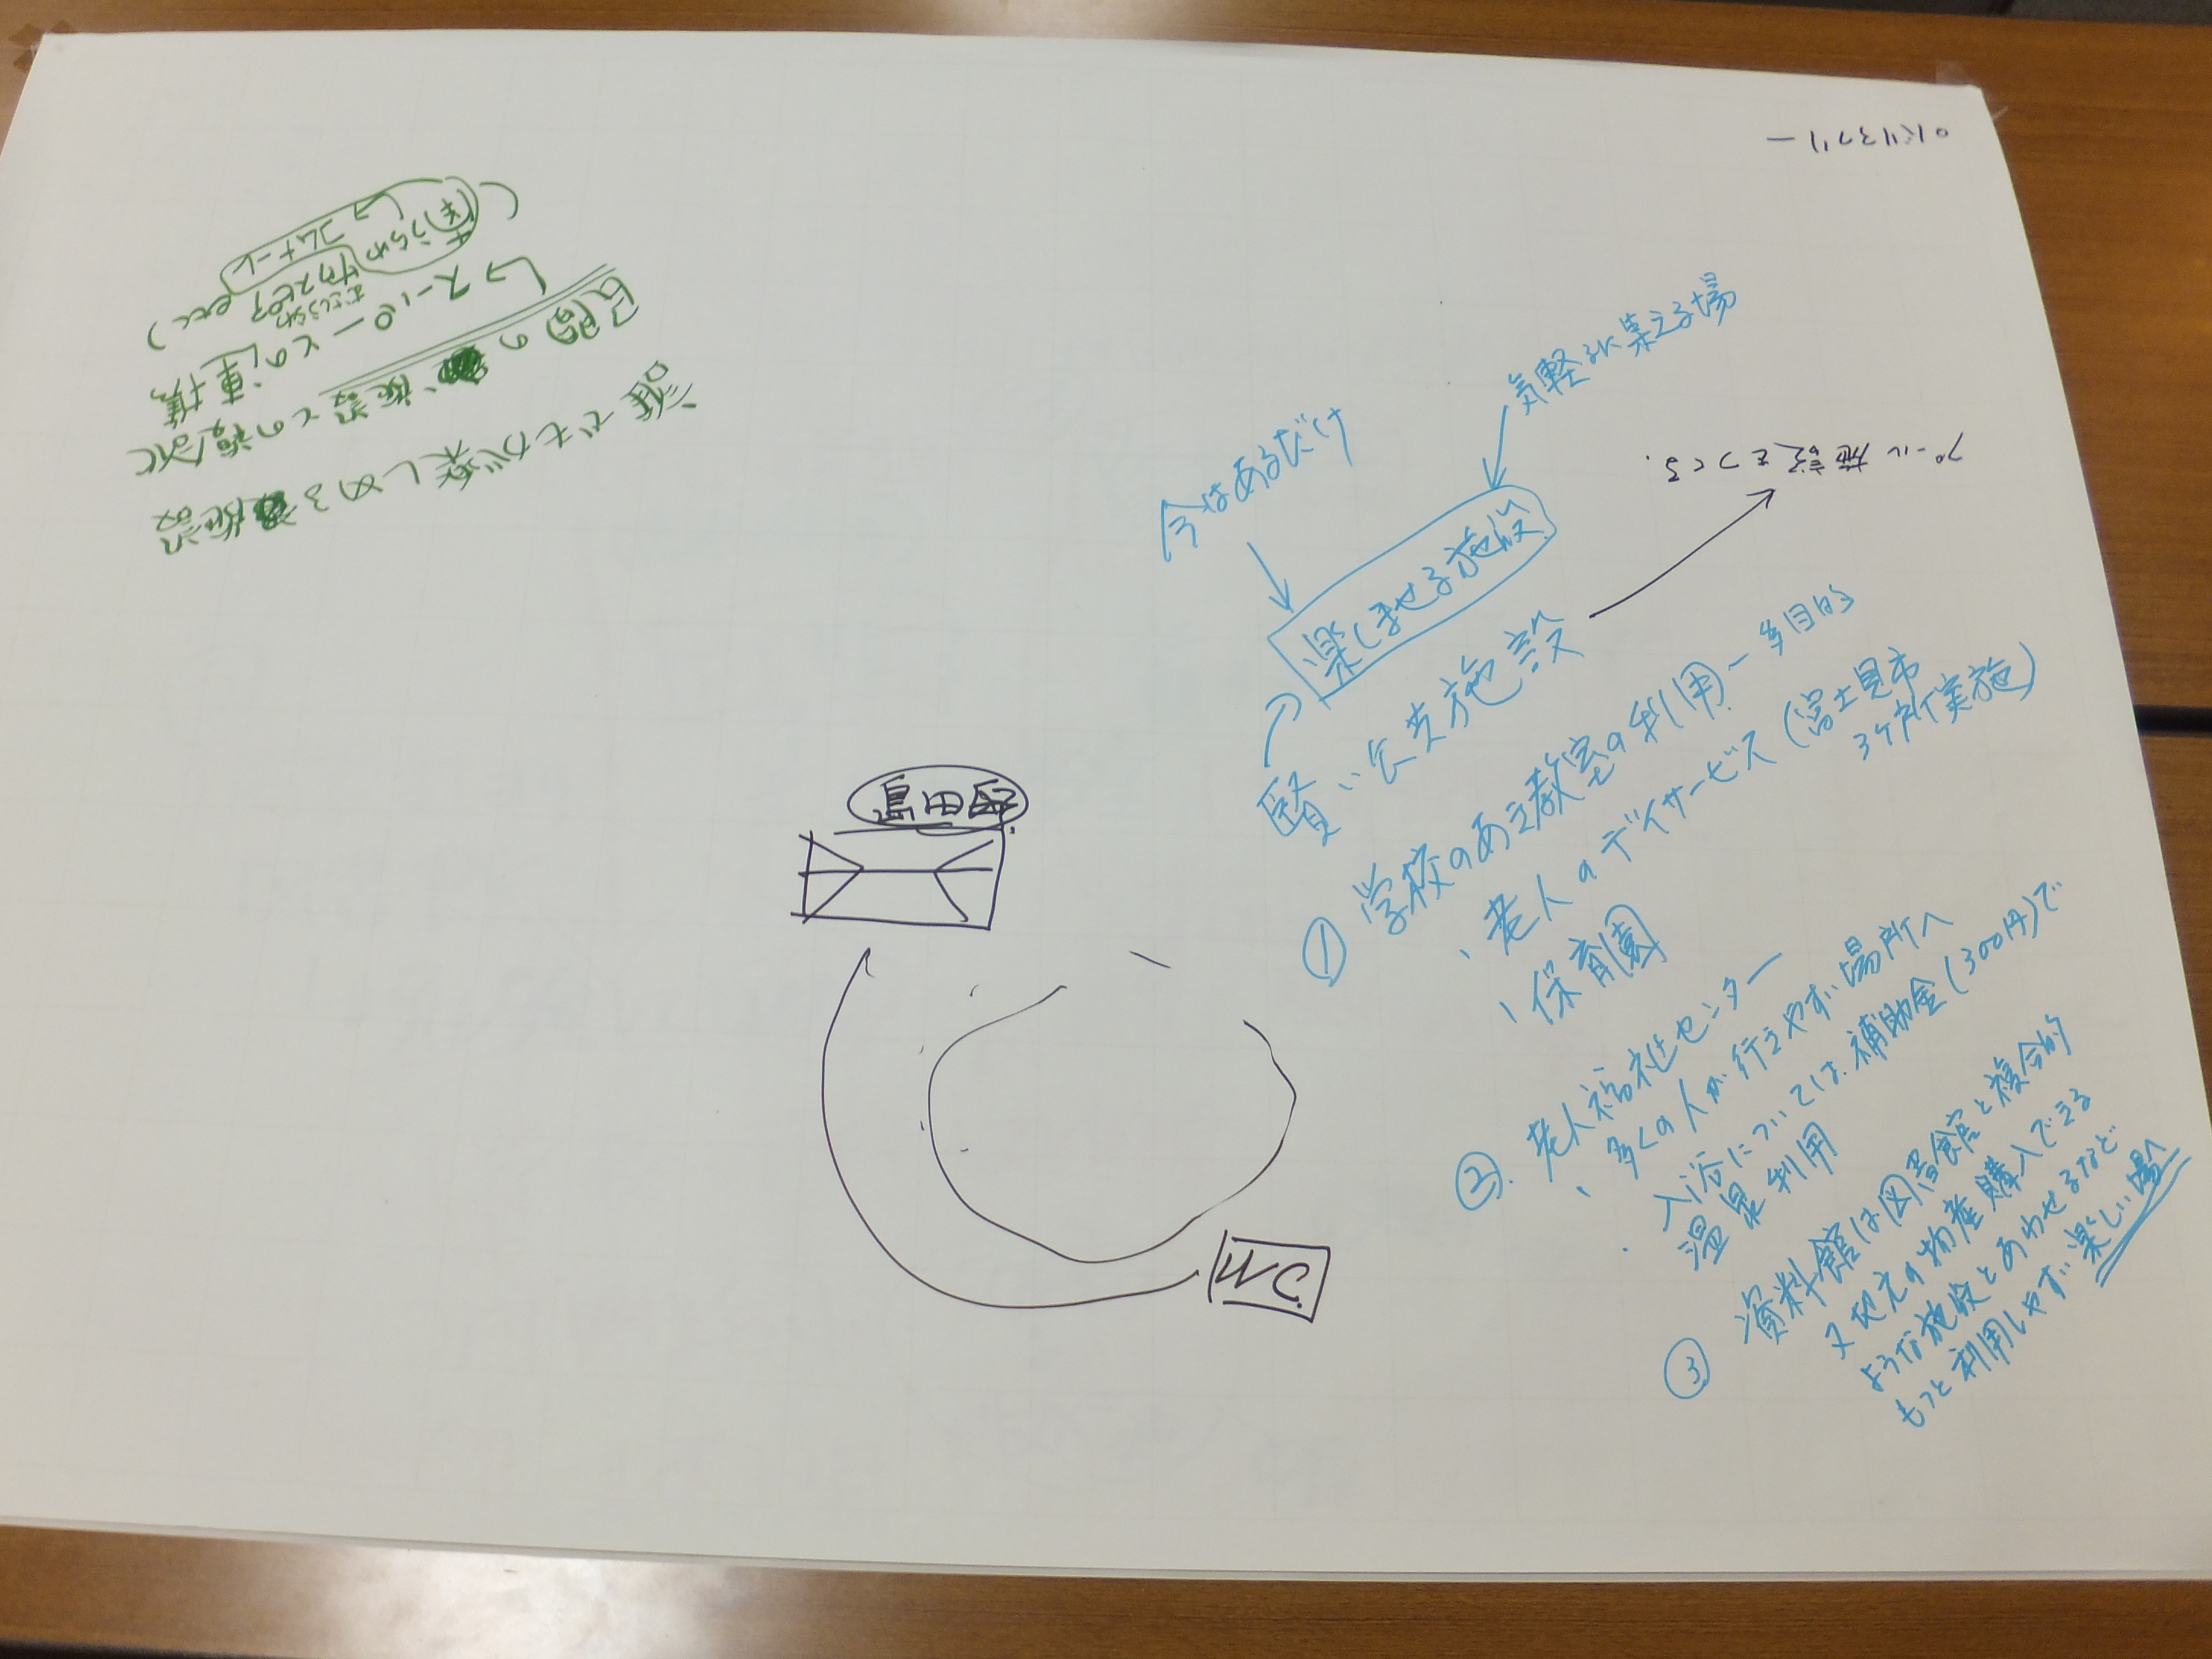 バリアフリー
プール施設をつくる.
気軽に集える場
今はあるだけ
楽しませる施設
賢い公共施設
① 学校のあき教室の利用ー多目的
、老人のデイサービス(富士見市
3ヶ所実施)
、保育園
②. 老人福祉センター
、多くの人が行きやすい場所へ
入浴については、補助金(300円)で
温泉利用
③ 資料館は図書館と複合的
又地元の物産購入できる
ような施設とあわせるなど
もっと利用しやすい楽しい場へ
島田邸
WC
誰でもが楽しめる施設
民間の施設との複合化
↳スーパーとの連携
カスピア etc)
コムナーレ